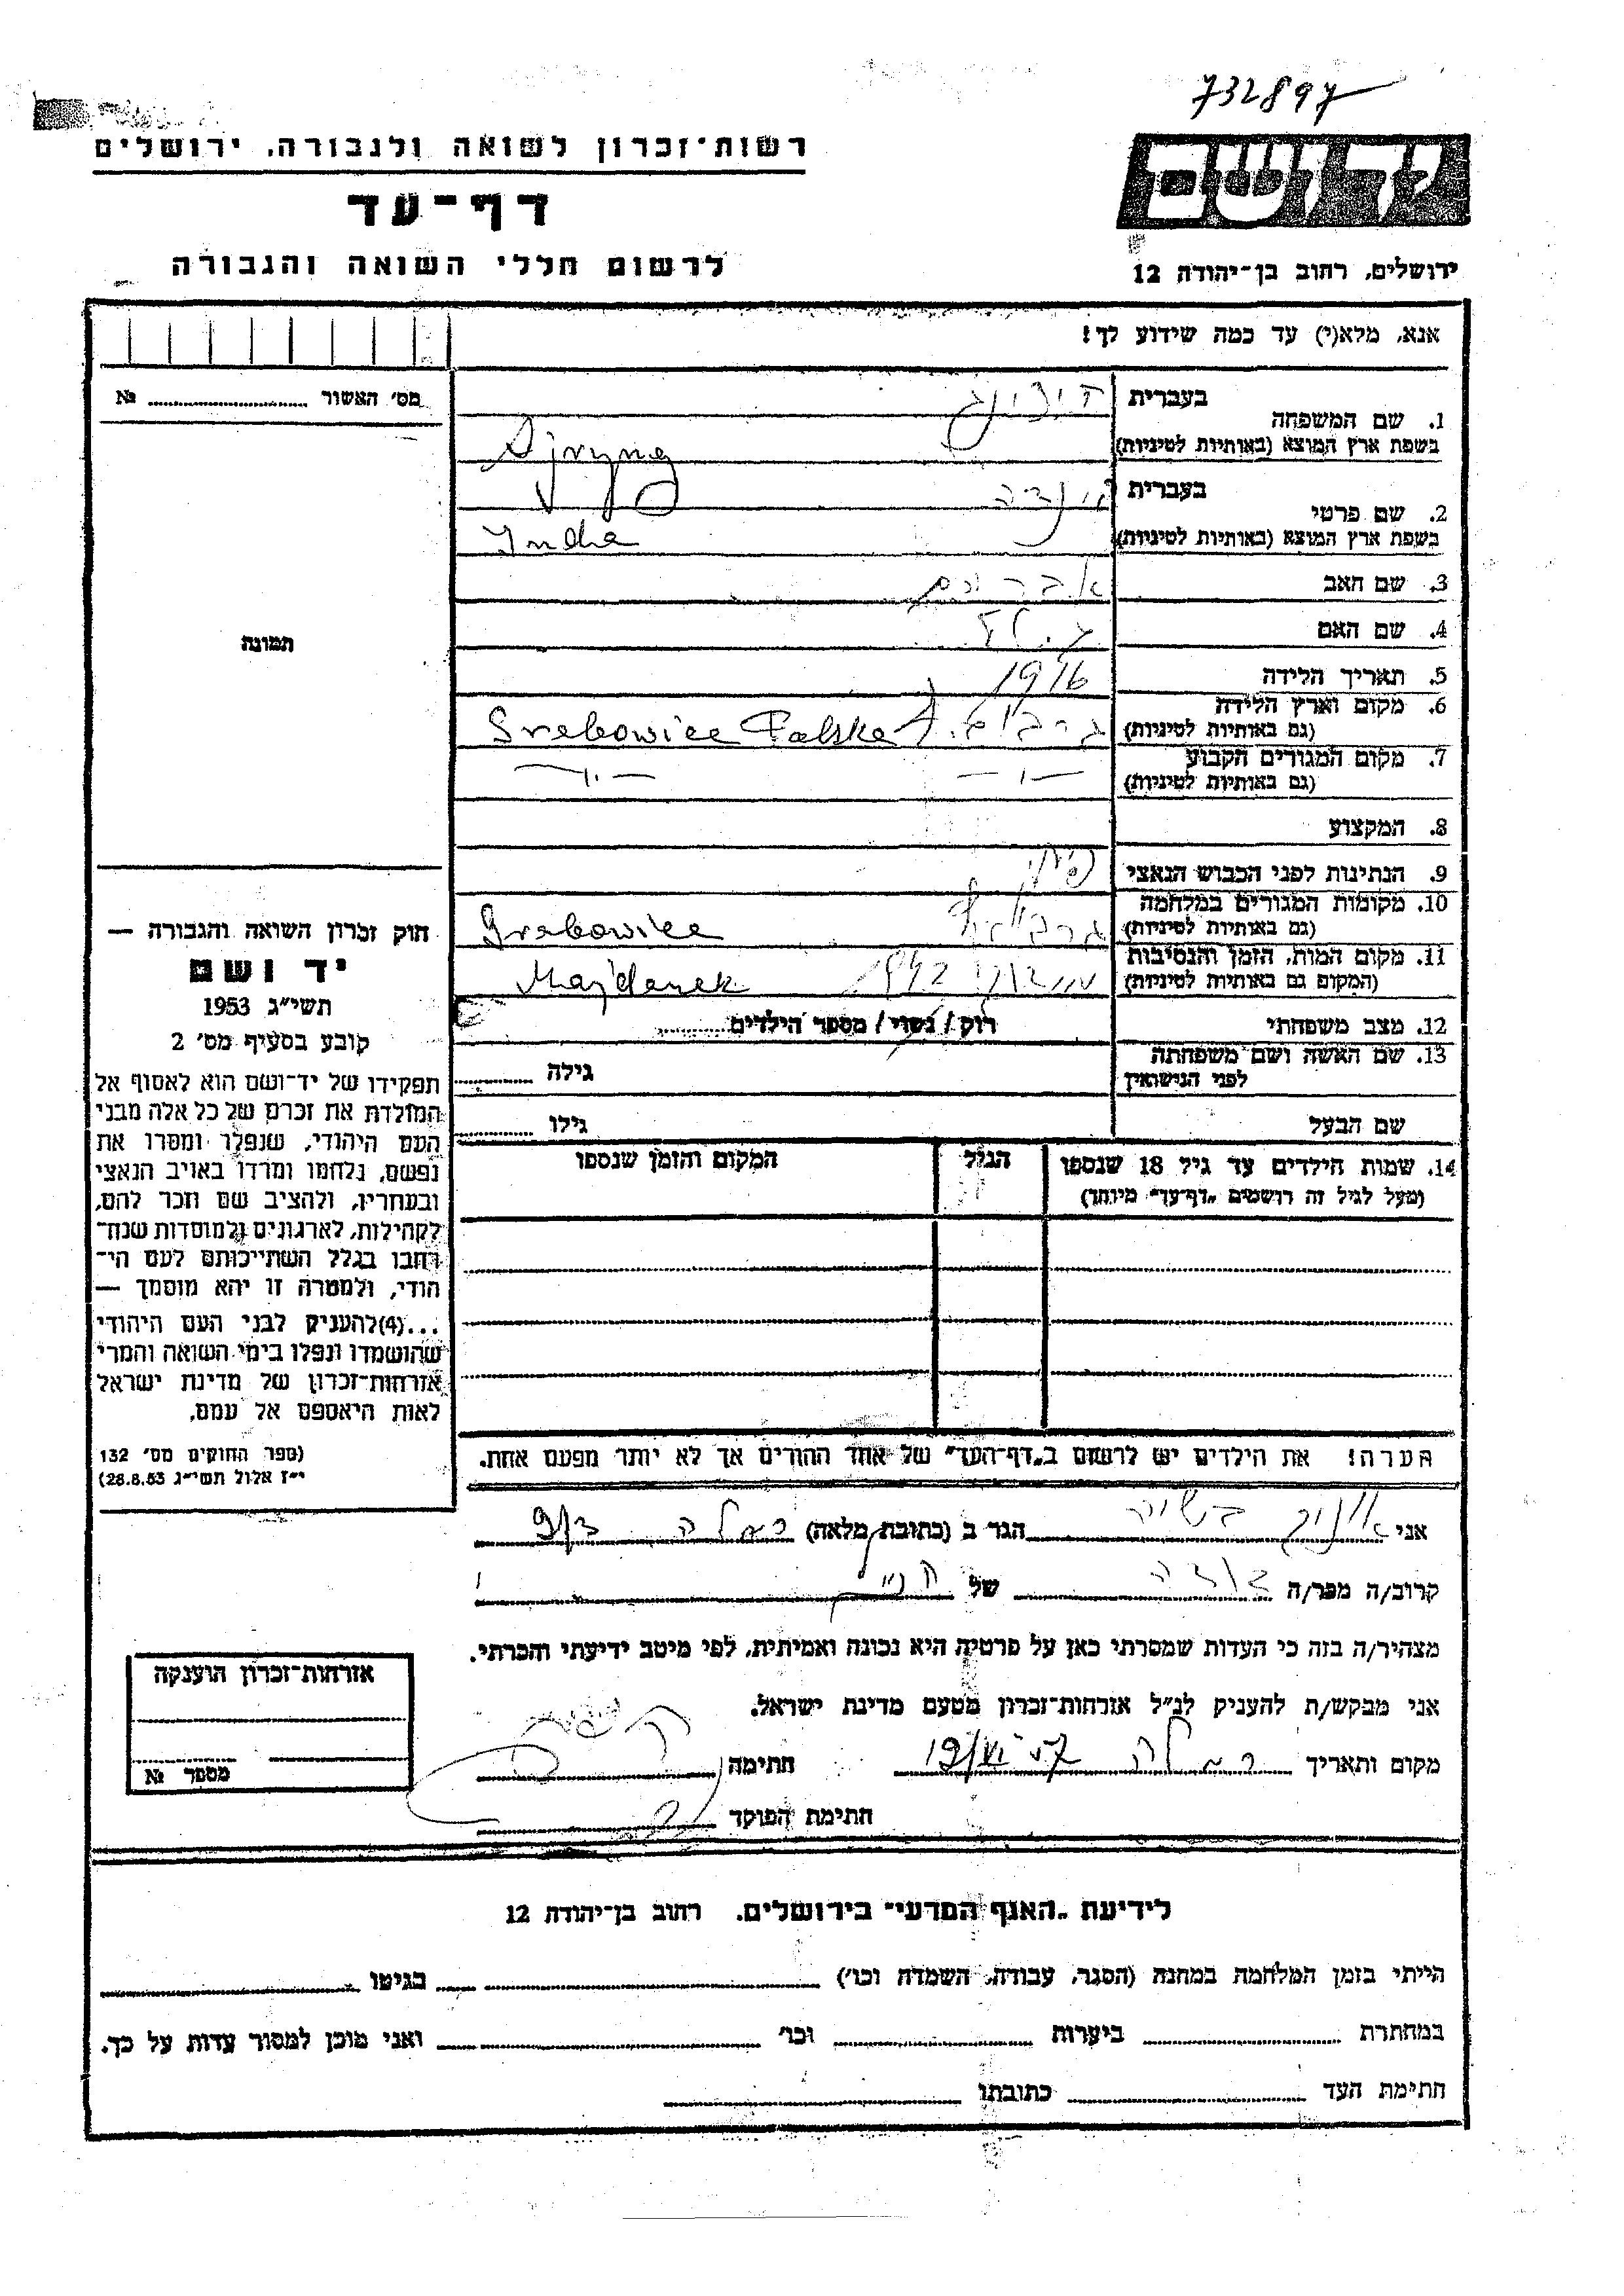 732897
רשות־זכרון לשואה ולגבורה, ירושלים
יד ושם
דף־עד
לרשום חללי השואה והגבורה
ירושלים, רחוב בן־יהודה 12
אנא, מלא(י) עד כמה שידוע לך!
מס' האשור № 
1. שם המשפחה
בעברית
בשפת ארץ המוצא (באותיות לטיניות)
2. שם פרטי
בעברית
בשפת ארץ המוצא (באותיות לטיניות)
3. שם האב אברהם
4. שם האם
5. תאריך הלידה 1916
6. מקום וארץ הלידה
(גם באותיות לטיניות) Grabowice Polska
7. מקום המגורים הקבוע
(גם באותיות לטיניות) — " — — " —
8. המקצוע
9. הנתינות לפני הכבוש הנאצי
10. מקומות המגורים במלחמה
(גם באותיות לטיניות) Grabowice
11. מקום המות, הזמן והנסיבות
(המקום גם באותיות לטיניות) מיידנק 1942 Majdanek
12. מצב משפחתי רוק / נשוי / מספר הילדים
13. שם האשה ושם משפחתה
לפני הנישואין גילה
שם הבעל גילו
14. שמות הילדים עד גיל 18 שנספו הגיל המקום והזמן שנספו
(מעל לגיל זה רושמים „דף־עד" מיוחד)
הערה! את הילדים יש לרשום ב„דף־העד" של אחד ההורים אך לא יותר מפעם אחת.
תמונה
חוק זכרון השואה והגבורה —
יד ושם
תשי"ג 1953
קובע בסעיף מס' 2
תפקידו של יד־ושם הוא לאסוף אל
המולדת את זכרם של כל אלה מבני
העם היהודי, שנפלו ומסרו את
נפשם, נלחמו ומרדו באויב הנאצי
ובעוזריו, ולהציב שם וזכר להם,
לקהילות, לארגונים ולמוסדות שנח־
רבו בגלל השתייכותם לעם הי־
הודי, ולמטרה זו יהא מוסמך —
...(4)להעניק לבני העם היהודי
שהושמדו ונפלו בימי השואה והמרי
אזרחות־זכרון של מדינת ישראל
לאות היאספם אל עמם.
(ספר החוקים מס' 132
י"ז אלול תשי"ג 28.8.53)
אני הגר ב (כתובת מלאה) רמלה
קרוב/ה מכר/ה של
מצהיר/ה בזה כי העדות שמסרתי כאן על פרטיה היא נכונה ואמיתית, לפי מיטב ידיעתי והכרתי.
אני מבקש/ת להעניק לנ"ל אזרחות־זכרון מטעם מדינת ישראל.
מקום ותאריך רמלה חתימה
חתימת הפוקד
אזרחות־זכרון הוענקה
מספר №
לידיעת „האגף המדעי" בירושלים, רחוב בן־יהודה 12
הייתי בזמן המלחמה במחנה (הסגר, עבודה, השמדה וכו') בגיטו
במחתרת ביערות וכו' ואני מוכן למסור עדות על כך.
חתימת העד כתובתו